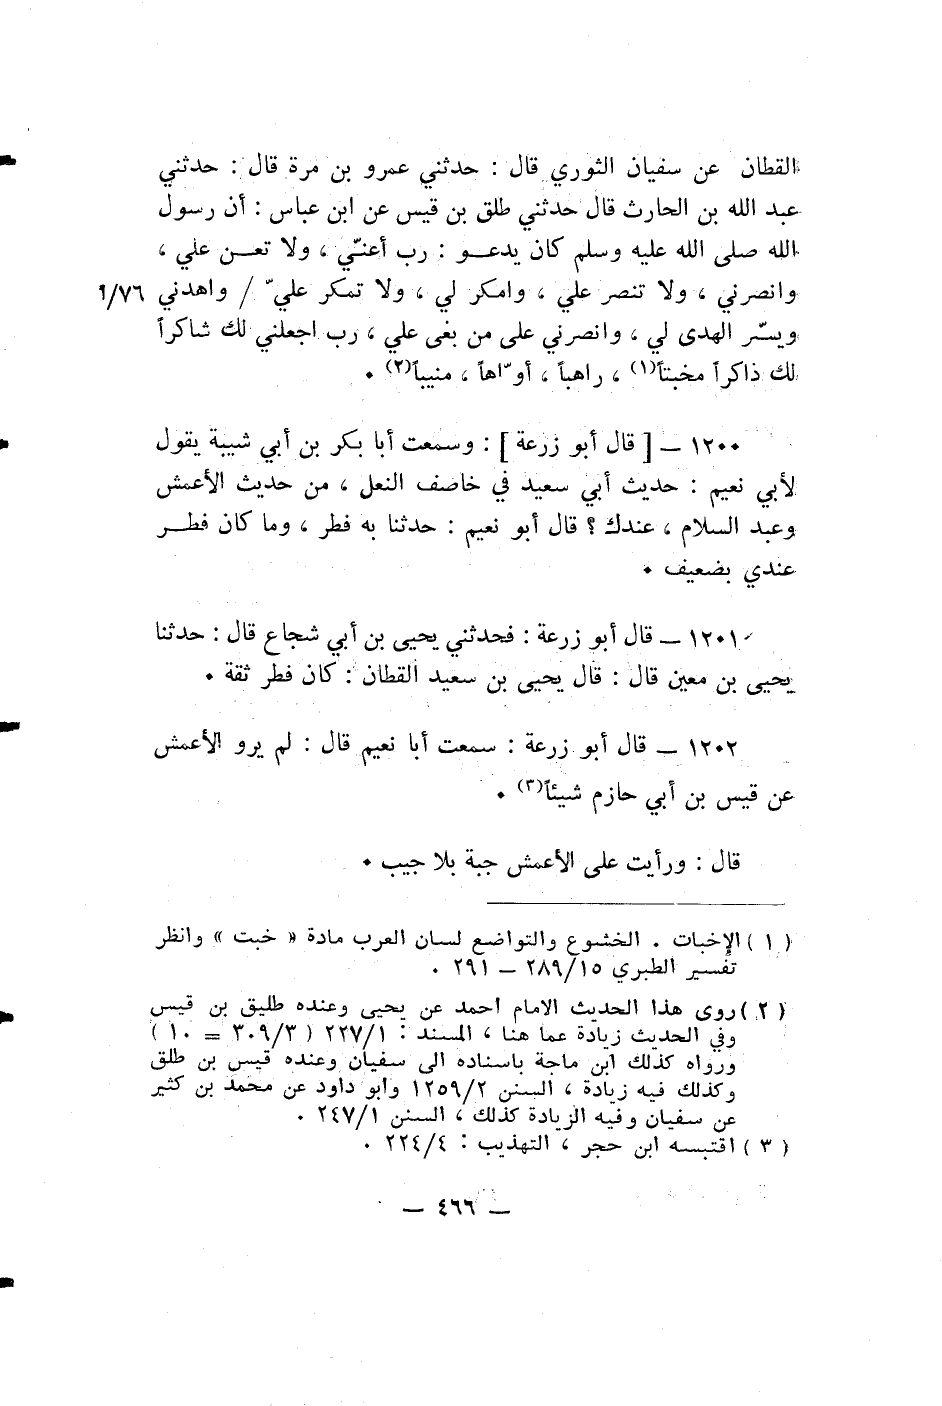 القطان عن سفيان الثوري قال : حدثني عمرو بن مرة قال : حدثني
عبد الله بن الحارث قال حدثني طلق بن قيس عن ابن عباس : أن رسول
الله صلى الله عليه وسلم كان يدعو : رب أعنّي ، ولا تعن علي ،
وانصرني ، ولا تنصر علي ، وامكر لي ، ولا تمكر عليّ / واهدني ٧٦/أ
ويسّر الهدى لي ، وانصرني على من بغى علي ، رب اجعلني لك شاكراً
لك ذاكراً مخبتاً(١) ، راهباً ، أوّاهاً ، منيباً(٢) .
١٢٠٠ ــ [ قال أبو زرعة ] : وسمعت أبا بكر بن أبي شيبة يقول
لأبي نعيم : حديث أبي سعيد في خاصف النعل ، من حديث الأعمش
وعبد السلام ، عندك ؟ قال أبو نعيم : حدثنا به فطر ، وما كان فطر
عندي بضعيف .
١٢٠١ ــ قال أبو زرعة : فحدثني يحيى بن أبي شجاع قال : حدثنا
يحيى بن معين قال : قال يحيى بن سعيد القطان : كان فطر ثقة .
١٢٠٢ ــ قال أبو زرعة : سمعت أبا نعيم قال : لم يرو الأعمش
عن قيس بن أبي حازم شيئاً(٣) .
قال : ورأيت على الأعمش جبة بلا جيب .
( ١ ) الإخبات . الخشوع والتواضع لسان العرب مادة « خبت » وانظر
تفسير الطبري ٢٨٩/١٥ ــ ٢٩١ .
( ٢ ) روى هذا الحديث الامام احمد عن يحيى وعنده طليق بن قيس
وفي الحديث زيادة عما هنا ، المسند : ٢٢٧/١ ( ٣٠٩/٣ = ١٠ )
ورواه كذلك ابن ماجة باسناده الى سفيان وعنده قيس بن طلق
وكذلك فيه زيادة ، السنن ١٢٥٩/٢ وابو داود عن محمد بن كثير
عن سفيان وفيه الزيادة كذلك ، السنن ٢٤٧/١ .
( ٣ ) اقتبسه ابن حجر ، التهذيب : ٢٢٤/٤ .
ــ ٤٦٦ ــ